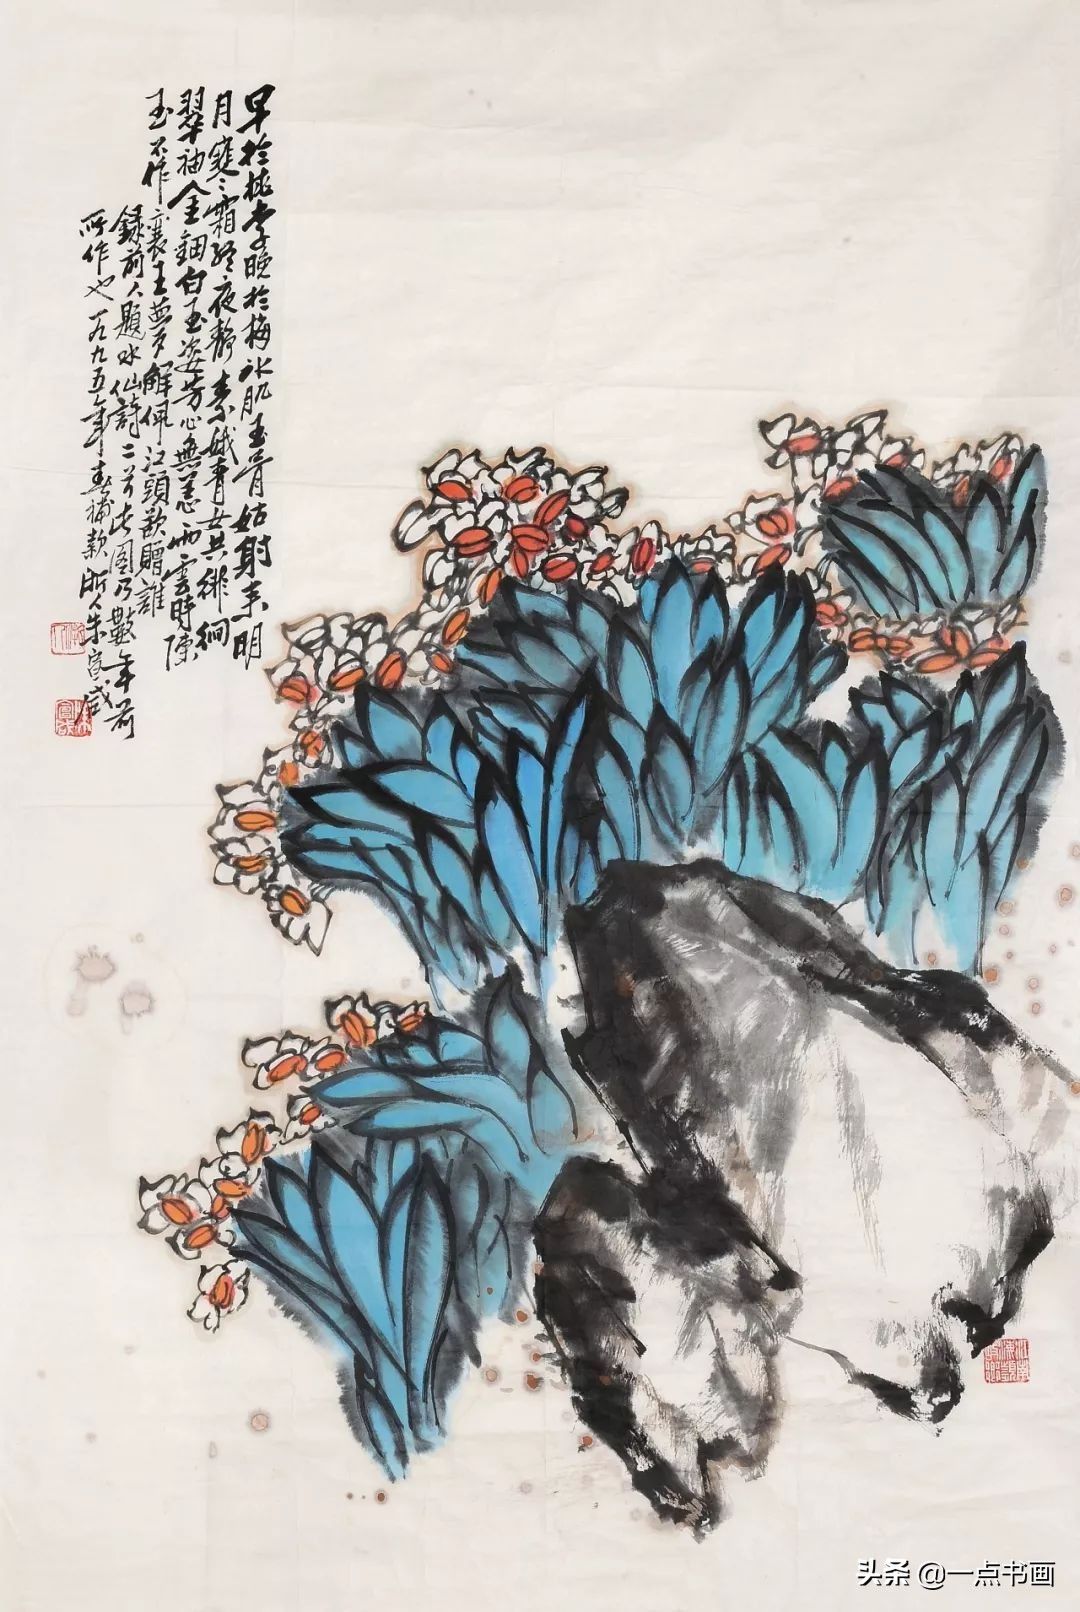 早於桃李晚於梅冰肌玉骨姑射来明
月寒霜終夜静素娥青女共徘徊
翠袖金鈿白玉姿芳心無恙雨雲時陳
玉不作襄王夢解佩江頭欲贈誰
録前人題水仙詩二首此圖乃數年前
所作也一九九五年春補款浙人朱宣咸
头条 @一点书画